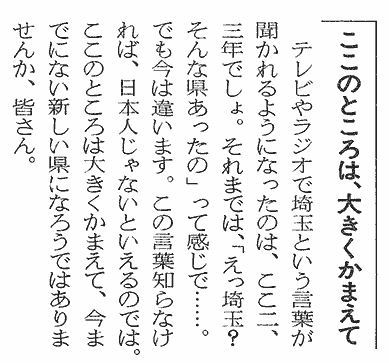 ここのところは、大きくかまえて
テレビやラジオで埼玉という言葉が
聞かれるようになったのは、ここ二、
三年でしょ。それまでは、「えっ埼玉?
そんな県あったの」って感じで……。
でも今は違います。この言葉知らなけ
れば、日本人じゃないといえるのでは。
ここのところは大きくかまえて、今ま
でにない新しい県になろうではありま
せんか、皆さん。